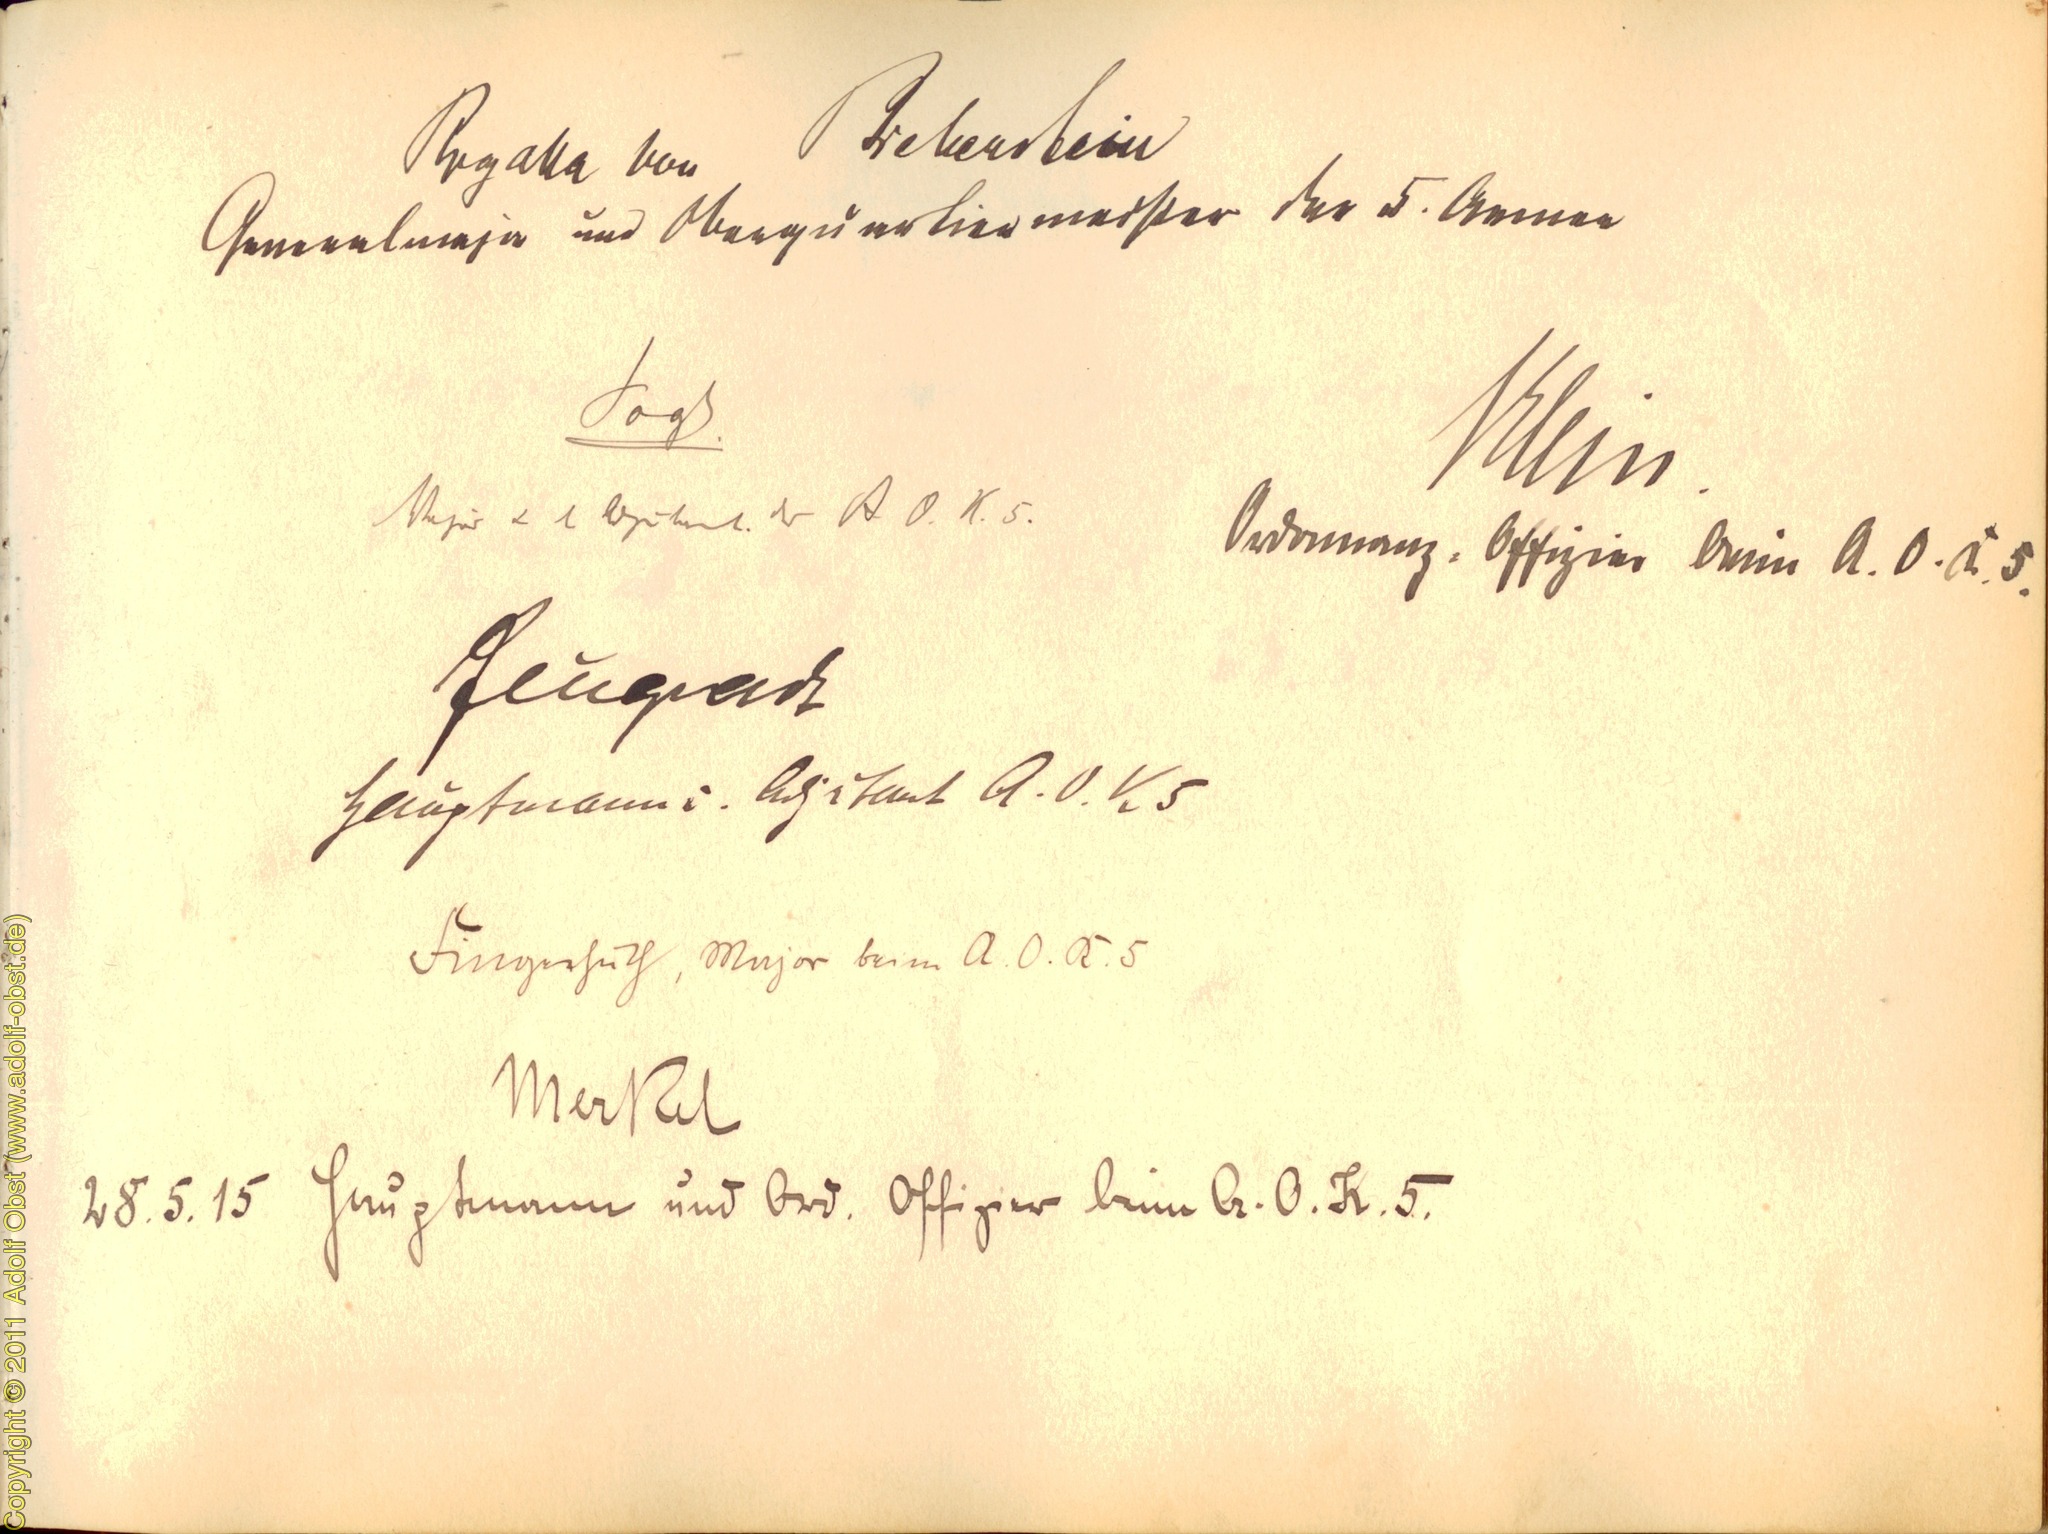 Rogalla von Bieberstein
Generalmajor und Oberquartiermeister der 5. Armee
Vogt.
Major & 1 Adjutant. der A. O. K. 5.
Klein.
Ordonnanz-Offizier beim A. O. K. 5.
Hauptmann u. Adjutant A. O. K 5
Fingerhuth, Major beim A. O. K. 5
Merkel
28. 5. 15 Hauptmann und Ord. Offizier beim A. O. K. 5.
Copyright © 2011 Adolf Obst (www.adolf-obst.de)